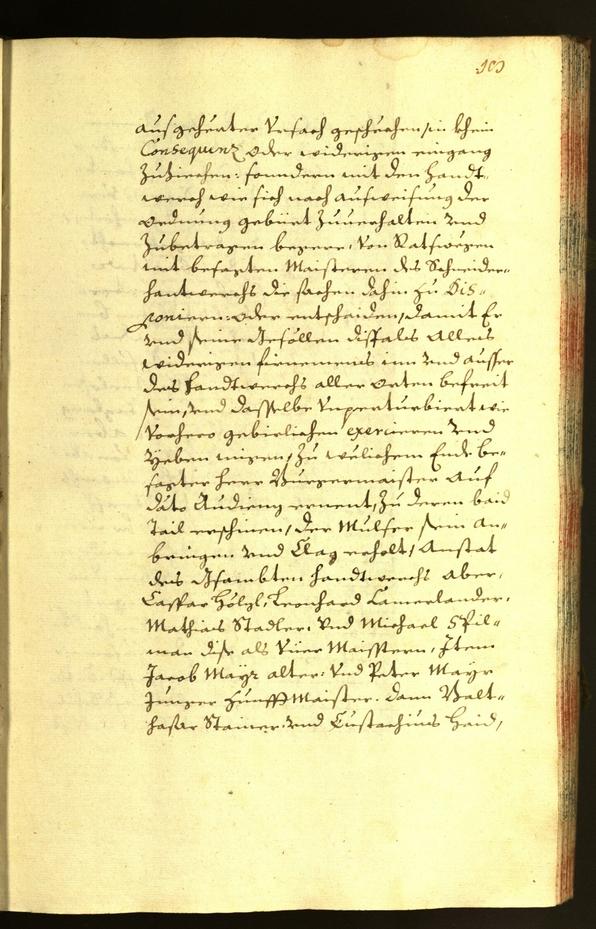 103
aus gehörter Ursach geschechen, in khein
Consequenz oder widerigen eingang
zuziechen: sonndern mit den Handt„
werch wie sich nach aufweisung der
ordnung gebürt zuuerhalten vnd
zubetragen begere, von Ratswegen
mit besagten Maisteren des Schneider„
hantwerchs die sachen dahin zu dis„
poniern oder entschaiden, damit Er
vnd seine Gesöllen disfals alles
widerigen firnemens inn vnd ausser
des Handtwerchs aller orten befreit
sein, vnd dasselbe vnperturbiert wie
vorhero gebirlichen exercieren vnd
yeben migen, zu welichem Ende be„
sagter Herr Burgermaister auf
dato Audienz ernent, zu deren baid
Tail erschinen, der Mulser sein an„
bringen vnd Clag erholt, Anstat
des Gsambten Handtwerchs aber,
Caspar Hölzl, Leonhard Lamerlander,
Mathias Stadler, vnd Michael Spil„
man dise als Vier Maistern, Item
Jacob Mayr alter, vnd Peter Mayr
Junger Zunfft Maister, dann Balt„
hasar Stainer, vnd Eustachius Haid,